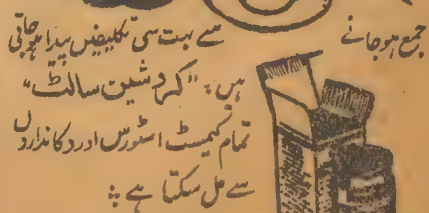 جمع ہوجانے سے بہت سی تکلیفیں پیدا ہوجاتی
ہیں ؛ "کروشین سالٹ"
تمام کیمسٹ اسٹورس اور دکانداروں
سے مل سکتا ہے ؛